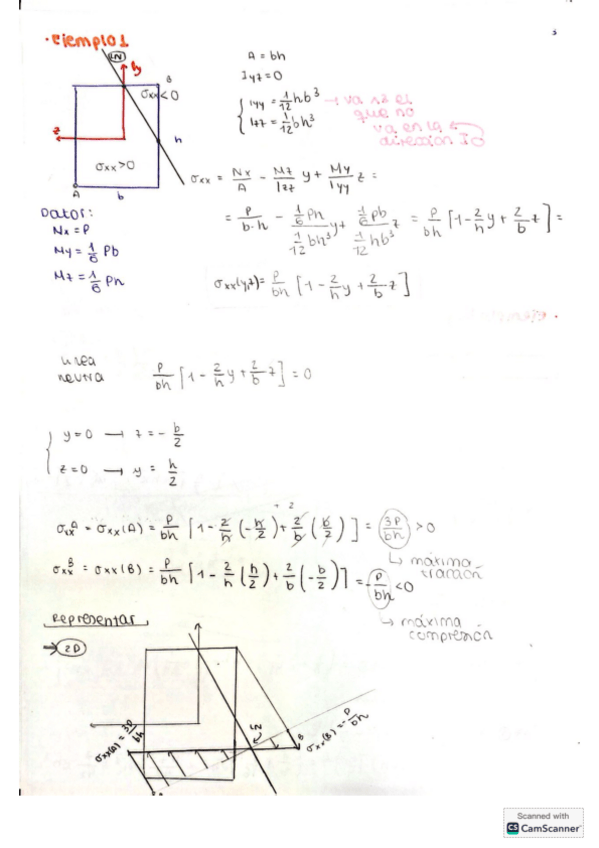 3
• Ejemplo 1
LN
y
B
σxx < 0
z
h
σxx > 0
A
b
A = bh
Iyz = 0
Iyy = 1/12 hb³ → va 1º el
que no
va en la
dirección I0
Izz = 1/12 bh³
σxx = Nx/A - Mz/Izz y + My/Iyy z =
Datos:
Nx = P
My = 1/6 Pb
Mz = 1/6 Ph
= P/b·h - (1/6 Ph)/(1/12 bh³) y + (1/6 Pb)/(1/12 hb³) z = P/bh [1 - 2/h y + 2/b z] =
σxx(y,z) = P/bh [1 - 2/h y + 2/b z]
línea
neutra
P/bh [1 - 2/h y + 2/b z] = 0
y = 0 → z = - b/2
z = 0 → y = h/2
σxx^A = σxx(A) = P/bh [1 - 2/h (-h/2) + 2/b (b/2)] = 3P/bh > 0
↳ máxima
tracción
σxx^B = σxx(B) = P/bh [1 - 2/h (h/2) + 2/b (-b/2)] = -P/bh < 0
↳ máxima
compresión
Representar
→ 2D
σxx(A) = 3P/bh
LN
B
σxx(B) = -P/bh
Scanned with
CS CamScanner